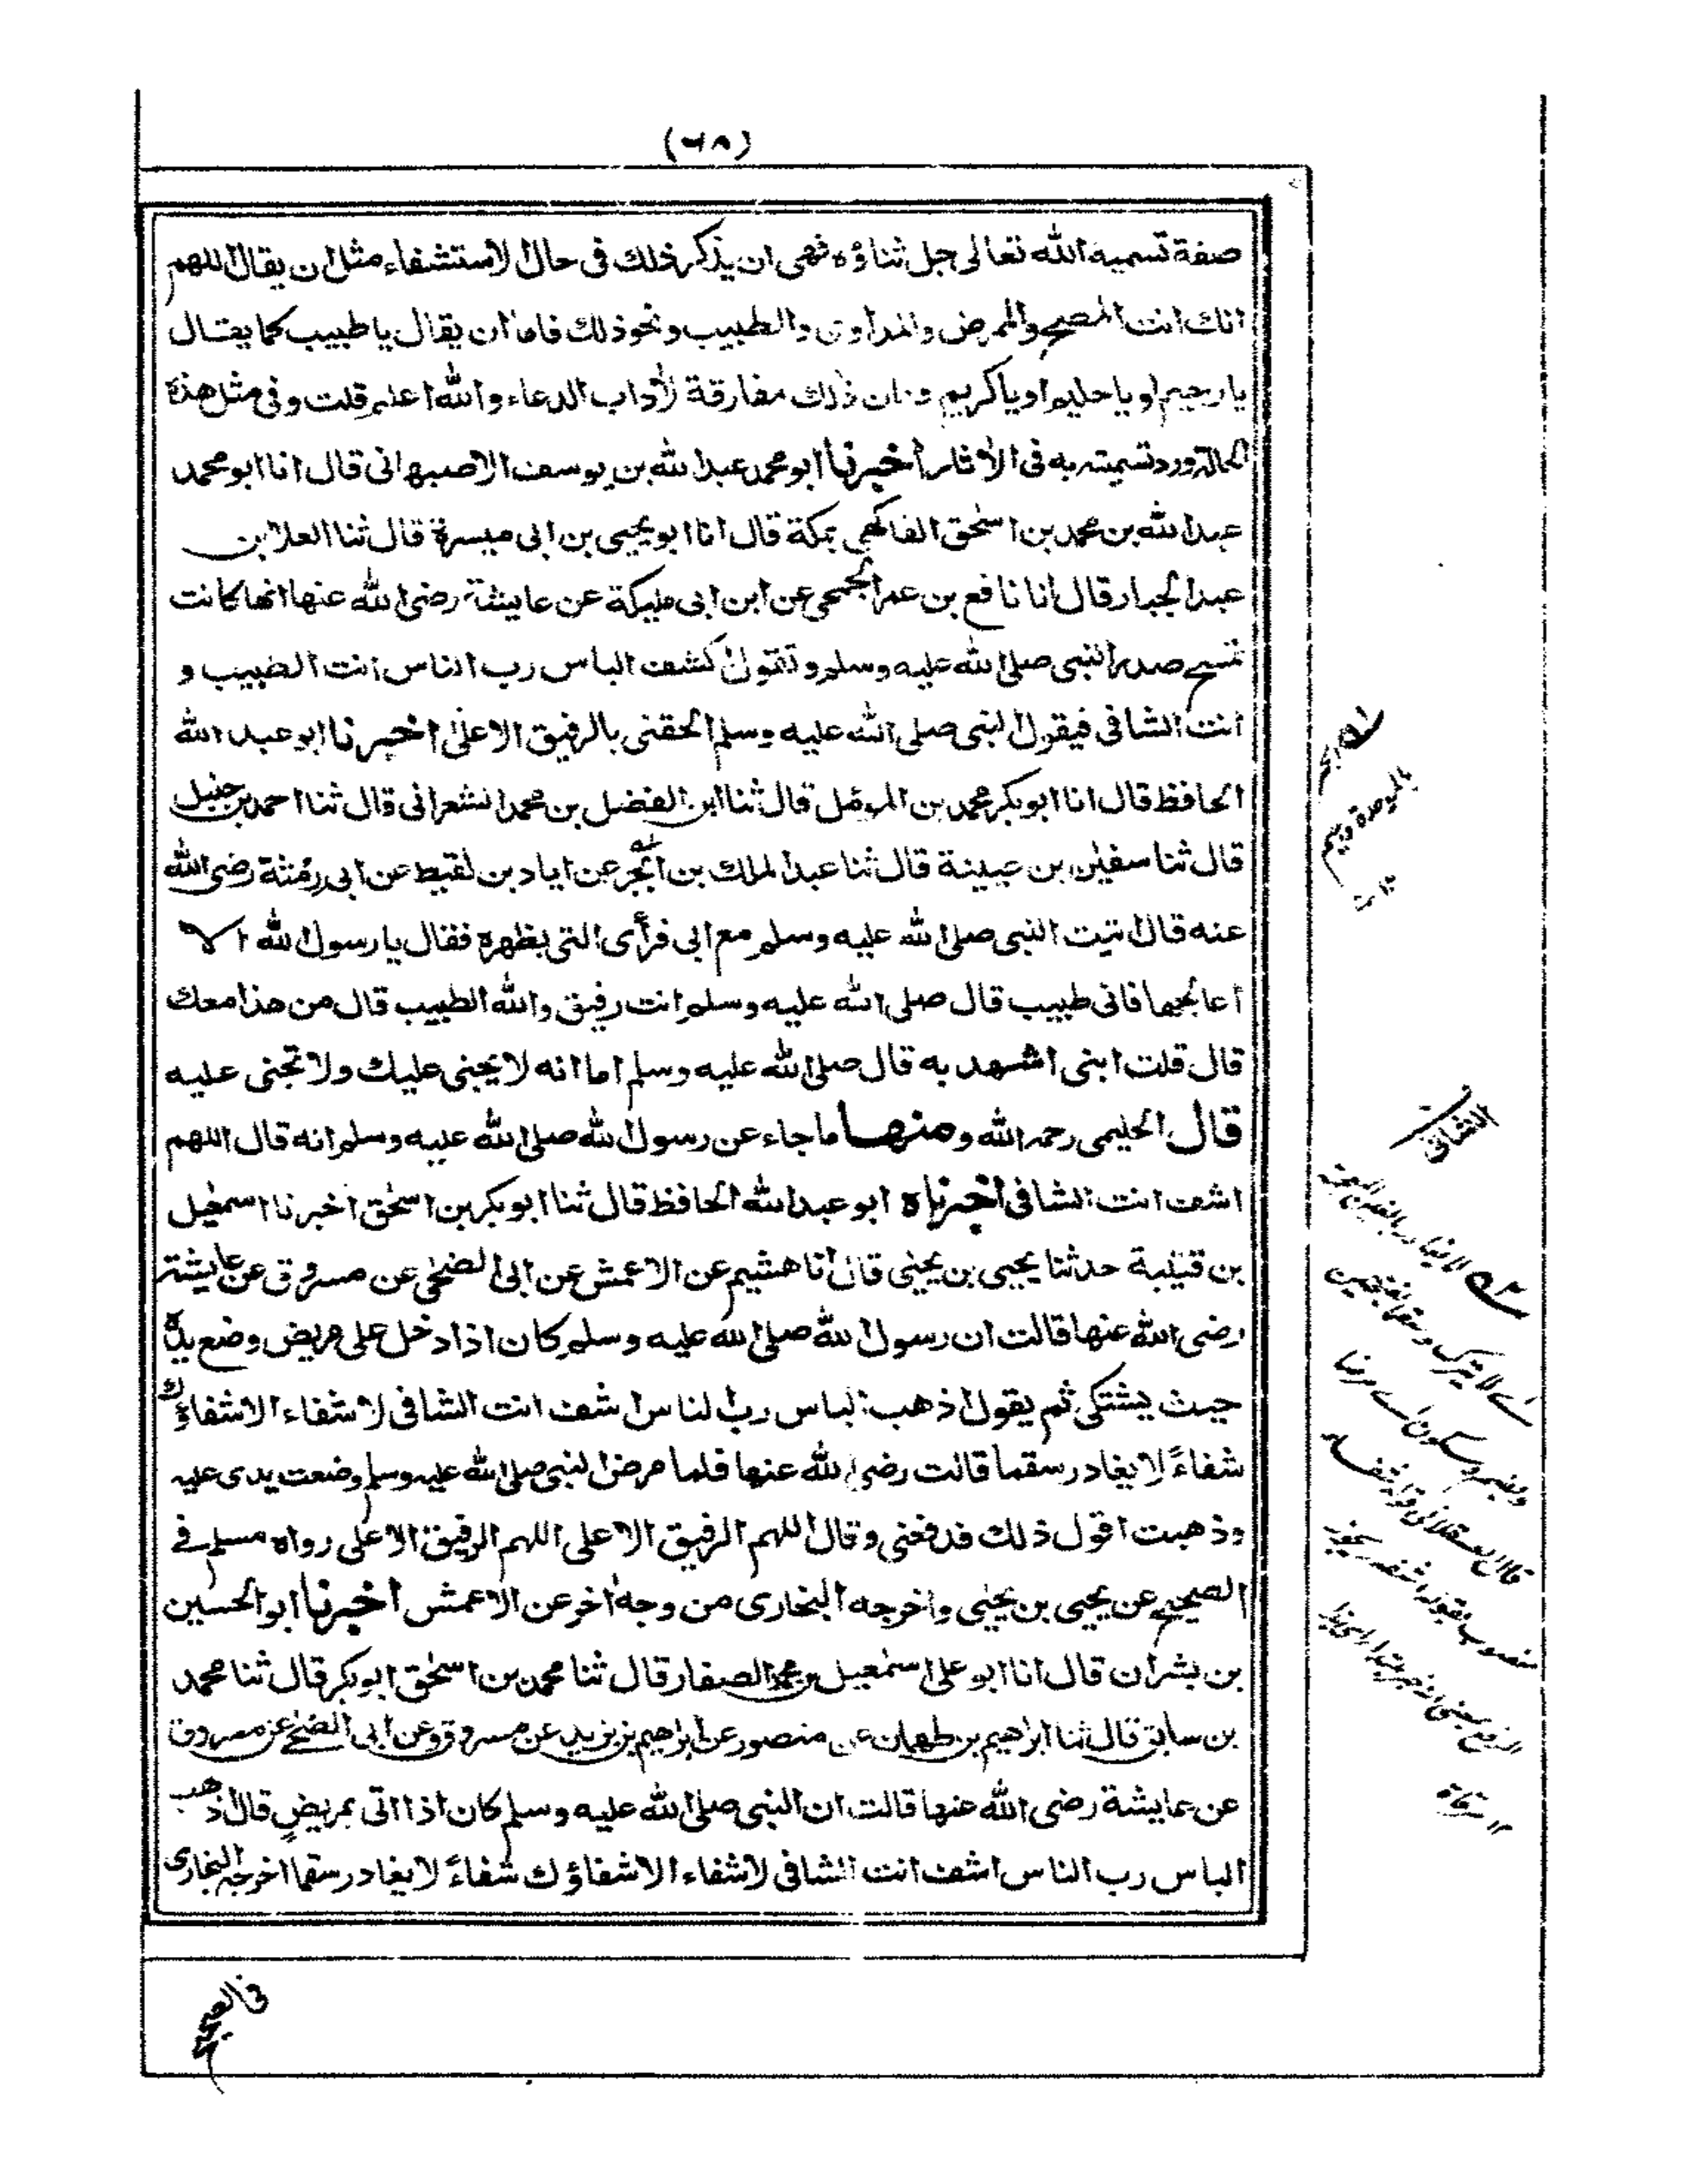 (٦٨)
صفة تسمية الله تعالى جل ثناؤه فهي ان يذكر ذلك في حال الاستشفاء مثل ان يقال اللهم
انك انت المصح والممرض والمداوى والطبيب ونحو ذلك فاما ان يقال يا طبيب كما يقال
يا رحيم او يا حليم او يا كريم فان ذلك مفارقة لآداب الدعاء والله اعلم قلت وفي مثل هذه
الحالة ورد تسميته به في الآثار اخبرنا ابو محمد عبد الله بن يوسف الاصبهاني قال انا ابو محمد
عبد الله بن محمد بن اسحق الفاكهي بمكة قال انا ابو يحيى بن ابي ميسرة قال ثنا العلا بن
عبد الجبار قال انا نافع بن عمر الجمحي عن ابن ابي مليكة عن عايشة رضى الله عنها انها كانت
تمسح صدر النبى صلى الله عليه وسلم وتقول اكشف الباس رب الناس انت الطبيب و
انت الشافى فيقول النبى صلى الله عليه وسلم الحقنى بالرفيق الاعلى اخبرنا ابو عبد الله
الحافظ قال انا ابو بكر محمد بن المؤمل قال ثنا ابن الفضل بن محمد الشعرانى قال ثنا احمد بن حنبل
قال ثنا سفيٰن بن عيينة قال ثنا عبد الملك بن ابجر عن اياد بن لقيط عن ابى رمثة رضى الله
عنه قال اتيت النبى صلى الله عليه وسلم مع ابى فرأى التى بظهره فقال يا رسول الله الا
اعالجها فانى طبيب قال صلى الله عليه وسلم انت رفيق والله الطبيب قال من هذا معك
قال قلت ابنى اشهد به قال صلى الله عليه وسلم اما انه لا يجنى عليك ولا تجنى عليه
قال الحليمى رحمه الله ومنها ما جاء عن رسول الله صلى الله عليه وسلم انه قال اللهم
اشف انت الشافى اخبرناه ابو عبد الله الحافظ قال ثنا ابو بكر بن اسحٰق اخبرنا اسمعيل
بن قتيبة حدثنا يحيى بن يحيٰى قال انا هشيم عن الاعمش عن ابى الضحٰى عن مسروق عن عايشة
رضى الله عنها قالت ان رسول الله صلى الله عليه وسلم كان اذا دخل على مريض وضع يده
حيث يشتكى ثم يقول اذهب الباس رب الناس اشف انت الشافى لا شفاء الا شفاؤك
شفاءً لا يغادر سقما قالت رضى الله عنها فلما مرض النبى صلى الله عليه وسلم وضعت يدى عليه
وذهبت اقول ذلك فدفعنى وقال اللهم الرفيق الاعلى اللهم الرفيق الاعلى رواه مسلم فے
الصحيح عن يحيى بن يحيٰى واخرجه البخارى من وجه آخر عن الاعمش اخبرنا ابو الحسين
بن بشران قال انا ابو على اسمٰعيل بن محمد الصفار قال ثنا محمد بن اسحٰق ابو بكر قال ثنا محمد
بن سابق قال ثنا ابراهيم بن طهمان عن منصور عن ابراهيم بن يزيد عن مسروق وعن ابى الضحٰى عن مسروق
عن عايشة رضى الله عنها قالت ان النبى صلى الله عليه وسلم كان اذا اتى بمريضٍ قال اذهب
الباس رب الناس اشف انت الشافى لا شفاء الا شفاؤك شفاءً لا يغادر سقما اخرجه البخارى
فى الصحيح
الشافى